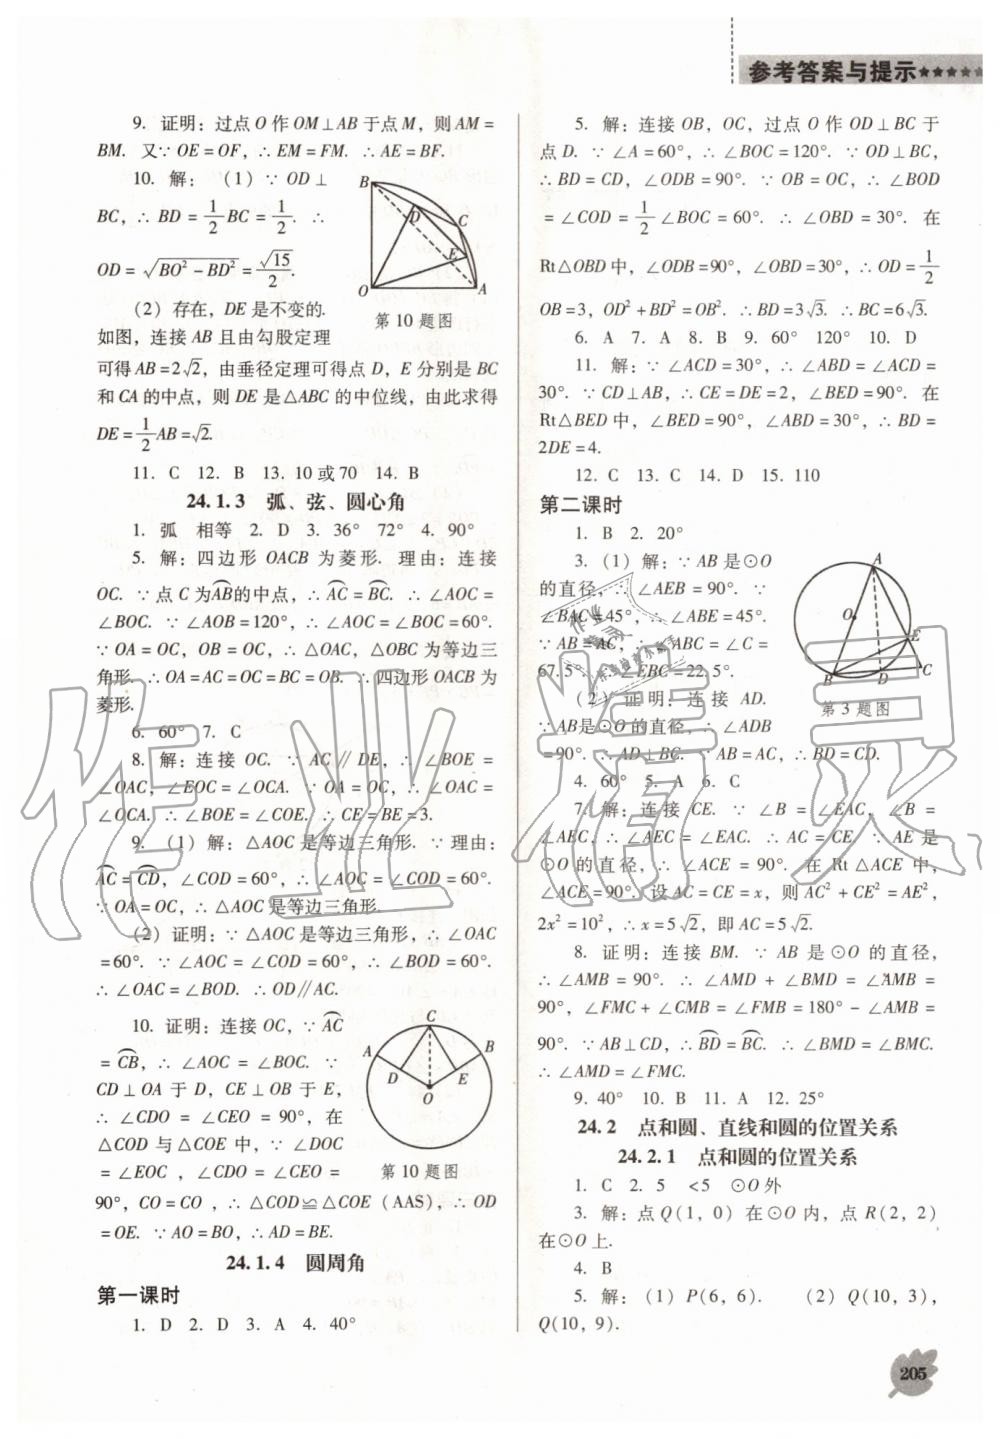 参考答案与提示★★★★★
9. 证明：过点 O 作 OM⊥AB 于点 M，则 AM=
BM. 又∵OE=OF，∴EM=FM. ∴AE=BF.
10. 解：（1）∵OD⊥
BC，∴BD=1/2BC=1/2. ∴
OD=√(BO²-BD²)=√15/2.
（2）存在，DE 是不变的.
如图，连接 AB 且由勾股定理
可得 AB=2√2，由垂径定理可得点 D，E 分别是 BC
和 CA 的中点，则 DE 是△ABC 的中位线，由此求得
DE=1/2AB=√2.
B
D
C
E
O
A
第 10 题图
11. C 12. B 13. 10 或 70 14. B
24.1.3 弧、弦、圆心角
1. 弧 相等 2. D 3. 36° 72° 4. 90°
5. 解：四边形 OACB 为菱形. 理由：连接
OC. ∵点 C 为AB的中点，∴AC=BC. ∴∠AOC=
∠BOC. ∵∠AOB=120°，∴∠AOC=∠BOC=60°.
∵OA=OC，OB=OC，∴△OAC，△OBC 为等边三
角形. ∴OA=AC=OC=BC=OB. ∴四边形 OACB 为
菱形.
6. 60° 7. C
8. 解：连接 OC. ∵AC∥DE，∴∠BOE=
∠OAC，∠EOC=∠OCA. ∵OA=OC，∴∠OAC=
∠OCA. ∴∠BOE=∠COE. ∴CE=BE=3.
9. （1）解：△AOC 是等边三角形. ∵理由：
AC=CD，∠COD=60°，∴∠AOC=∠COD=60°.
∵OA=OC，∴△AOC 是等边三角形.
（2）证明：∵△AOC 是等边三角形，∴∠OAC
=60°. ∵∠AOC=∠COD=60°，∴∠BOD=60°.
∴∠OAC=∠BOD. ∴OD∥AC.
10. 证明：连接 OC，∵AC
=CB，∴∠AOC=∠BOC. ∵
CD⊥OA 于 D，CE⊥OB 于 E，
∴∠CDO=∠CEO=90°，在
△COD 与△COE 中，∵∠DOC
=∠EOC，∠CDO=∠CEO=
90°，CO=CO，∴△COD≌△COE（AAS），∴OD
=OE. ∵AO=BO，∴AD=BE.
C
A
B
D
E
O
第 10 题图
24.1.4 圆周角
第一课时
1. D 2. D 3. A 4. 40°
5. 解：连接 OB，OC，过点 O 作 OD⊥BC 于
点 D. ∵∠A=60°，∴∠BOC=120°. ∵OD⊥BC，
∴BD=CD，∠ODB=90°. ∵OB=OC，∴∠BOD
=∠COD=1/2∠BOC=60°. ∴∠OBD=30°. 在
Rt△OBD 中，∠ODB=90°，∠OBD=30°，∴OD=1/2
OB=3，OD²+BD²=OB². ∴BD=3√3. ∴BC=6√3.
6. A 7. A 8. B 9. 60° 120° 10. D
11. 解：∵∠ACD=30°，∴∠ABD=∠ACD=
30°. ∵CD⊥AB，∴CE=DE=2，∠BED=90°. 在
Rt△BED 中，∠BED=90°，∠ABD=30°，∴BD=
2DE=4.
12. C 13. C 14. D 15. 110
第二课时
1. B 2. 20°
3. （1）解：∵AB 是⊙O
的直径，∴∠AEB=90°. ∵
∠BAC=45°，∴∠ABE=45°.
∵AB=AC，∴∠ABC=∠C=
67.5°. ∴∠EBC=22.5°.
（2）证明：连接 AD.
∵AB是⊙O 的直径，∴∠ADB
=90°. ∴AD⊥BC. ∵AB=AC，∴BD=CD.
A
O
E
B
D
C
第 3 题图
4. 60° 5. A 6. C
7. 解：连接 CE. ∵∠B=∠EAC，∠B=
∠AEC，∴∠AEC=∠EAC. ∴AC=CE. ∵AE 是
⊙O 的直径，∴∠ACE=90°. 在 Rt△ACE 中，
∠ACE=90°. 设 AC=CE=x，则 AC²+CE²=AE²，
2x²=10²，∴x=5√2，即 AC=5√2.
8. 证明：连接 BM. ∵AB 是⊙O 的直径，
∴∠AMB=90°. ∴∠AMD+∠BMD=∠AMB=
90°，∠FMC+∠CMB=∠FMB=180°-∠AMB=
90°. ∵AB⊥CD，∴BD=BC. ∴∠BMD=∠BMC.
∴∠AMD=∠FMC.
9. 40° 10. B 11. A 12. 25°
24.2 点和圆、直线和圆的位置关系
24.2.1 点和圆的位置关系
1. C 2. 5 <5 ⊙O 外
3. 解：点 Q（1，0）在⊙O 内，点 R（2，2）
在⊙O 上.
4. B
5. 解：（1）P(6，6). （2）Q(10，3)，
Q(10，9).
205
作业精灵